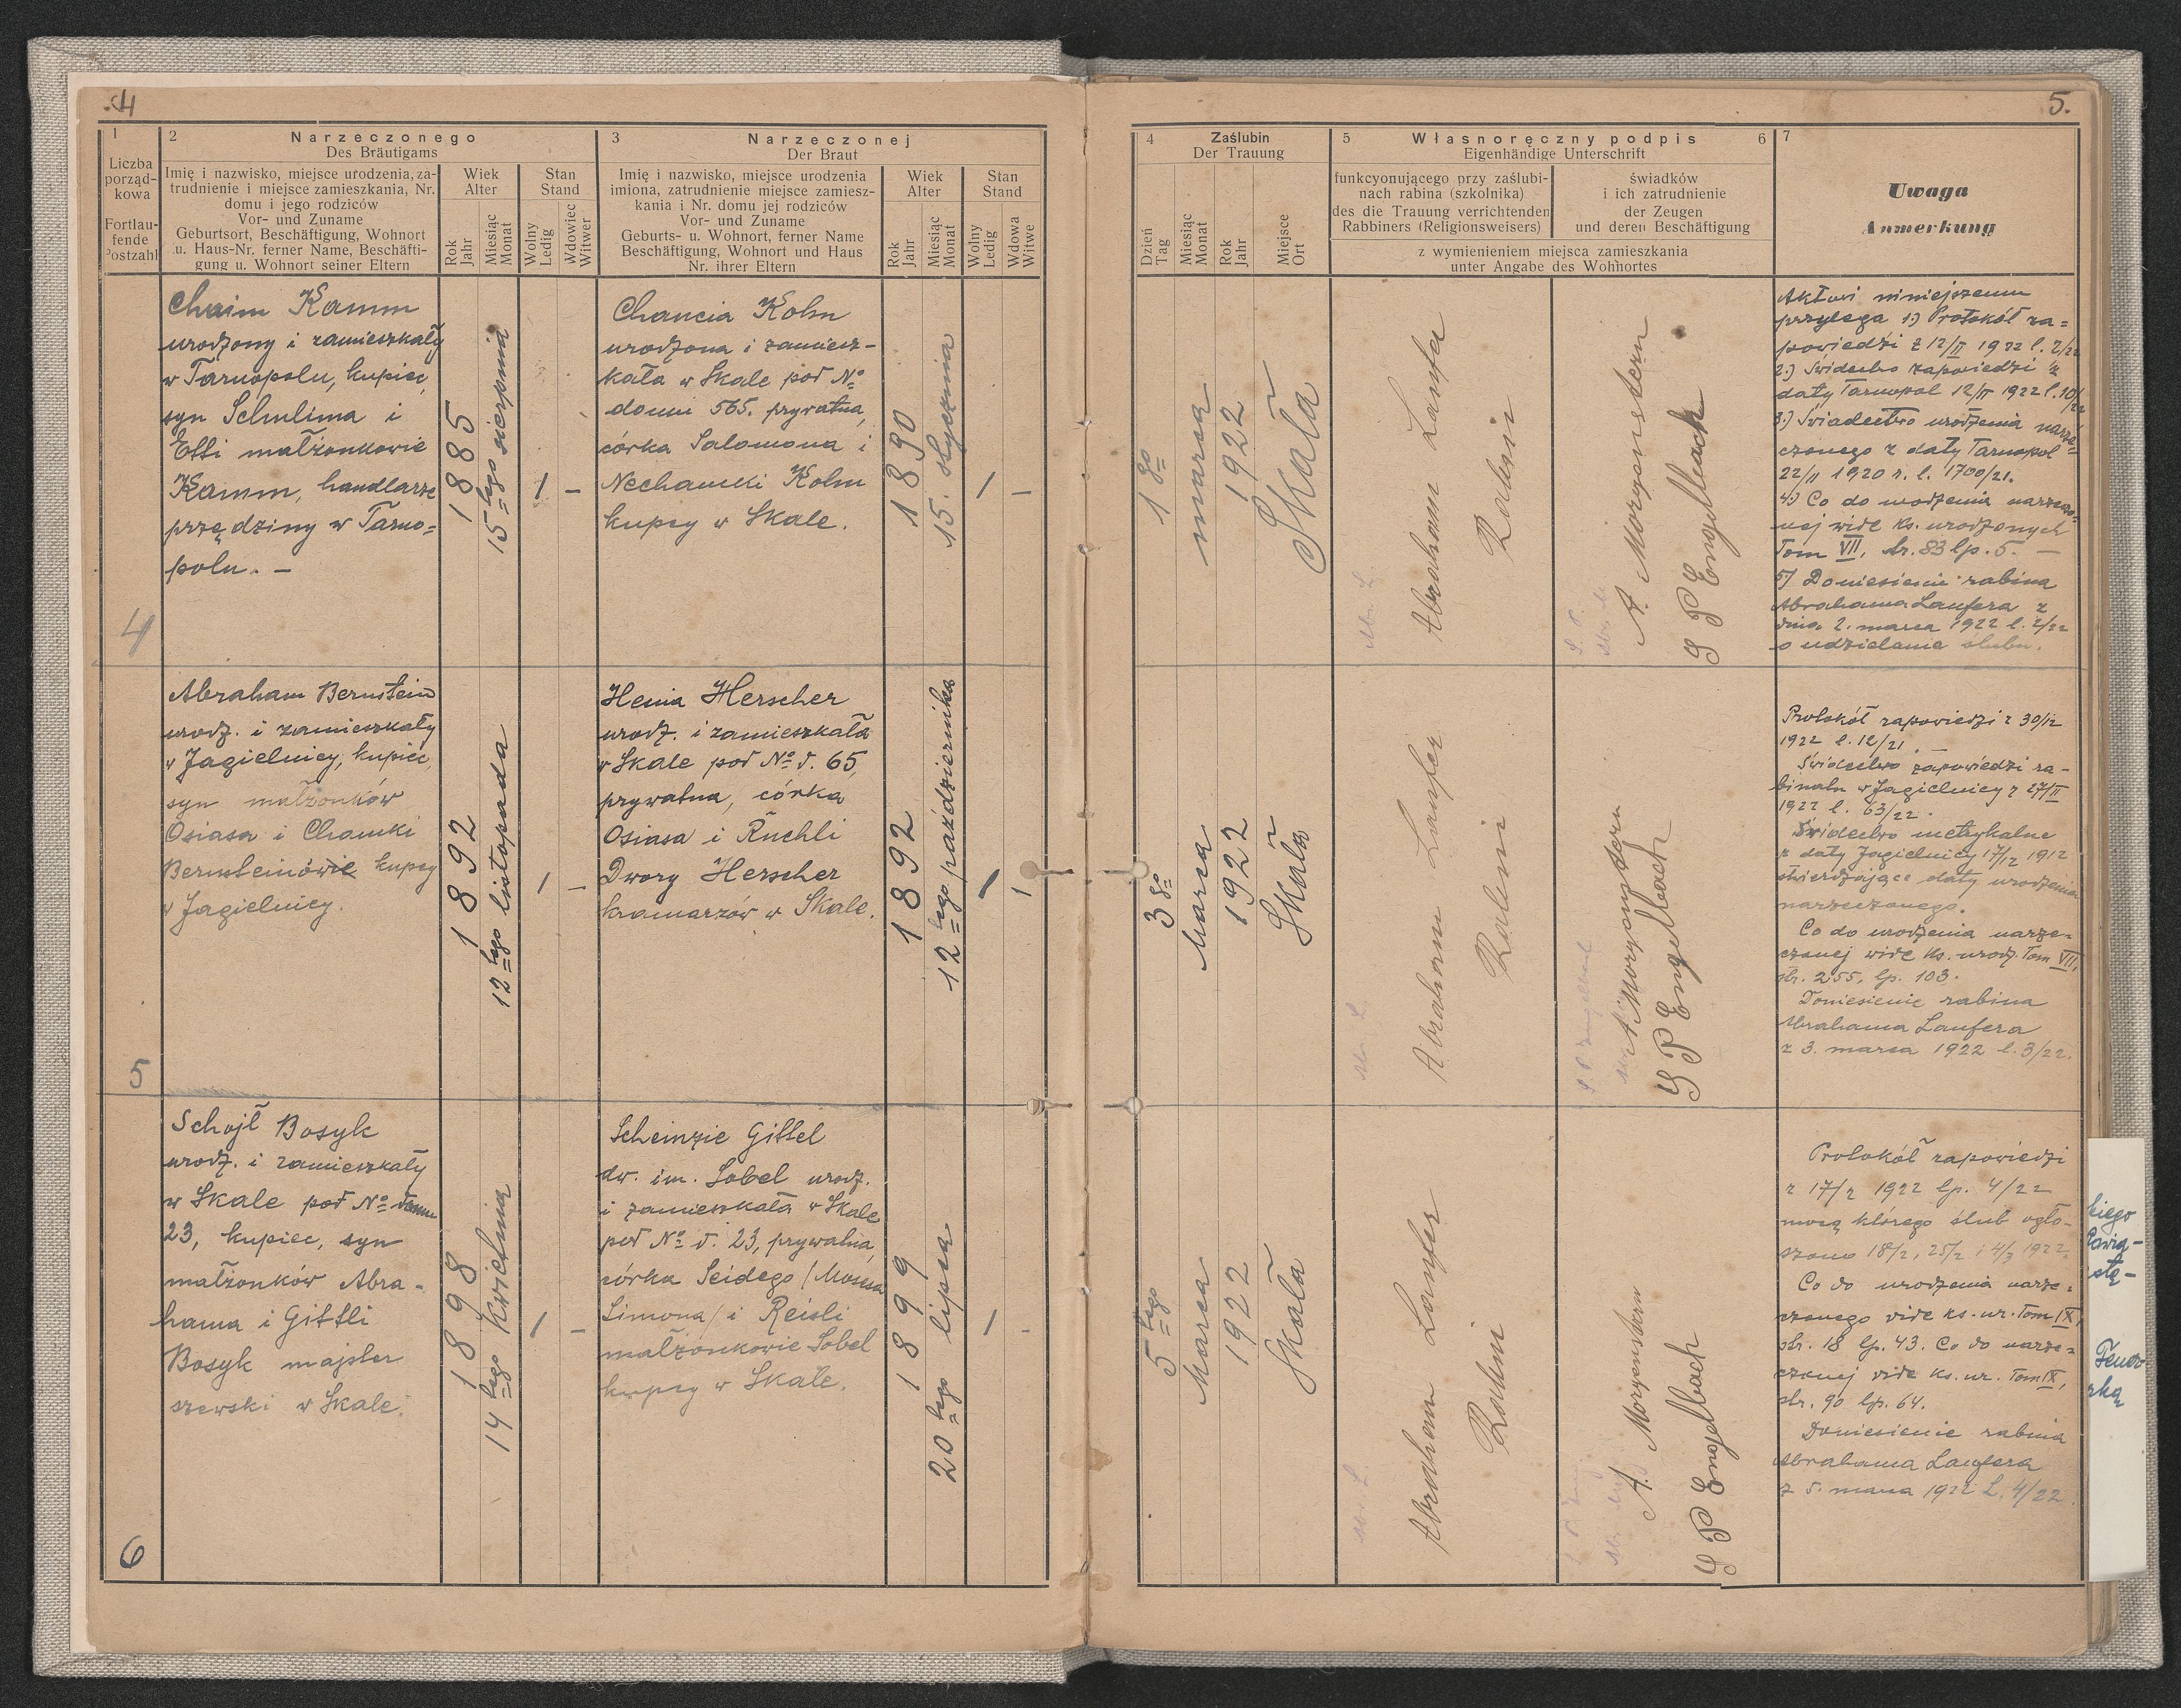 4
1
Liczba
porząd-
kowa
Fortlau-
fende
Postzahl
2
Narzeczonego
Des Bräutigams
Imię i nazwisko, miejsce urodzenia, za-
trudnienie i miejsce zamieszkania, Nr.
domu i jego rodziców
Vor- und Zuname
Geburtsort, Beschäftigung, Wohnort
u. Haus-Nr. ferner Name, Beschäfti-
gung u. Wohnort seiner Eltern
Wiek
Alter
Rok
Jahr
Miesiąc
Monat
Stan
Stand
Wolny
Ledig
Wdowiec
Witwer
3
Narzeczonej
Der Braut
Imię i nazwisko, miejsce urodzenia
imiona, zatrudnienie miejsce zamiesz-
kania i Nr. domu jej rodziców
Vor- und Zuname
Geburts- u. Wohnort, ferner Name
Beschäftigung, Wohnort und Haus
Nr. ihrer Eltern
Wiek
Alter
Rok
Jahr
Miesiąc
Monat
Stan
Stand
Wolny
Ledig
Wdowa
Witwe
4
Chaim Kamm
urodzony i zamieszkały
w Tarnopolu, kupiec,
syn Schulima i
Etti małżonkowie
Kamm, handlarze
przędziny w Tarno=
polu. –
1885
15tego sierpnia
1 –
Chancia Kohn
urodzona i zamiesz-
kała w Skale pod No
domu 565. prywatna,
córka Salomona i
Nechamki Kohn
kupcy w Skale.
1890
15. stycznia
1 –
5
Abraham Bernstein
urodz. i zamieszkały
w Jagielnicy, kupiec,
syn małżonków
Osiasa i Chamki
Bernsteinówie kupcy
w Jagielnicy.
1892
12tego listopada
1 –
Henia Herscher
urodz. i zamieszkała
w Skale pod No d. 65,
prywatna, córka
Osiasa i Ruchli
Dwory Herscher
kramarzów w Skale.
1892
12tego października
1 1
6
Schojl Bosyk
urodz. i zamieszkały
w Skale pod No domu
23, kupiec, syn
małżonków Abra-
hama i Gittli
Bosyk majster
szewski w Skale.
1898
14tego kwietnia
1 –
Scheinzie Gittel
dw. im. Sobel urodz.
i zamieszkała w Skale
pod No d. 23, prywatna,
córka Seidego /Mosesa
Simona/ i Reisli
małżonkowie Sobel
kupcy w Skale.
1899
20tego lipca
1 -
5.
4
Zaślubin
Der Trauung
Dzień
Tag
Miesiąc
Monat
Rok
Jahr
Miejsce
Ort
5
Własnoręczny podpis
6
Eigenhändige Unterschrift
funkcyonującego przy zaślubi-
nach rabina (szkolnika)
des die Trauung verrichtenden
Rabbiners (Religionsweisers)
świadków
i ich zatrudnienie
der Zeugen
und deren Beschäftigung
z wymienieniem miejsca zamieszkania
unter Angabe des Wohnortes
7
Uwaga
Anmerkung
1go
marca
1922
Skała
Abr. L.
Abraham Laufer
Rabin
A. Morgenstern
S P Engelbach
Aktowi niniejszemu
przylega 1.) Protokół za=
powiedzi z 12/II 1922 l. 2/22
2.) Świdectwo zapowiedzi z
daty Tarnopol 12/II 1922 l. 10/22
3.) Świadectwo urodzenia narze=
czonego z daty Tarnopol
22/11 1920 r. l. 1700/21.
4.) Co do urodzenia narzeczo=
nej wide ks. urodzonych
Tom VII, str. 83 lp. 5. –
5/ Doniesienie rabina
Abrahama Laufera z
dnia 2. marca 1922 l. 2/22
o udzielenie ślubu.
3go
Marca
1922
Skała
Abr. L.
Abraham Laufer
Rabin
S P Engelbach
A. Morgenstern
S P Engelbach
Protokół zapowiedzi z 30/12
1922 l. 12/21. –
Świdectwo zapowiedzi ra-
binatu w Jagielnicy z 27/II
1922 l. 63/22.
Świdectwo metrykalne
z daty Jagielnicy 17/12 1912
stwierdzające daty urodzenia
narzeczonego.
Co do urodzenia narze=
czonej wide ks. urodz. Tom VIII,
str. 255, lp. 103.
Doniesienie rabina
Abrahama Laufera
z 3. marca 1922 l. 3/22.
5tego
Marca
1922
Skała
Abr. L.
Abraham Laufer
Rabin
A. Morgenstern
S P Engelbach
Protokół zapowiedzi
z 17/2 1922 lp. 4/22
mocą którego ślub ogło-
szono 18/2, 25/2 i 4/3 1922.
Co do urodzenia narze=
czonego vide ks. ur. Tom IX,
str. 18 lp. 43. Co do narze=
czonej vide ks. ur. Tom IX,
str. 90 lp. 64.
Doniesienie rabina
Abrahama Laufera
z 5. marca 1922 L. 4/22.